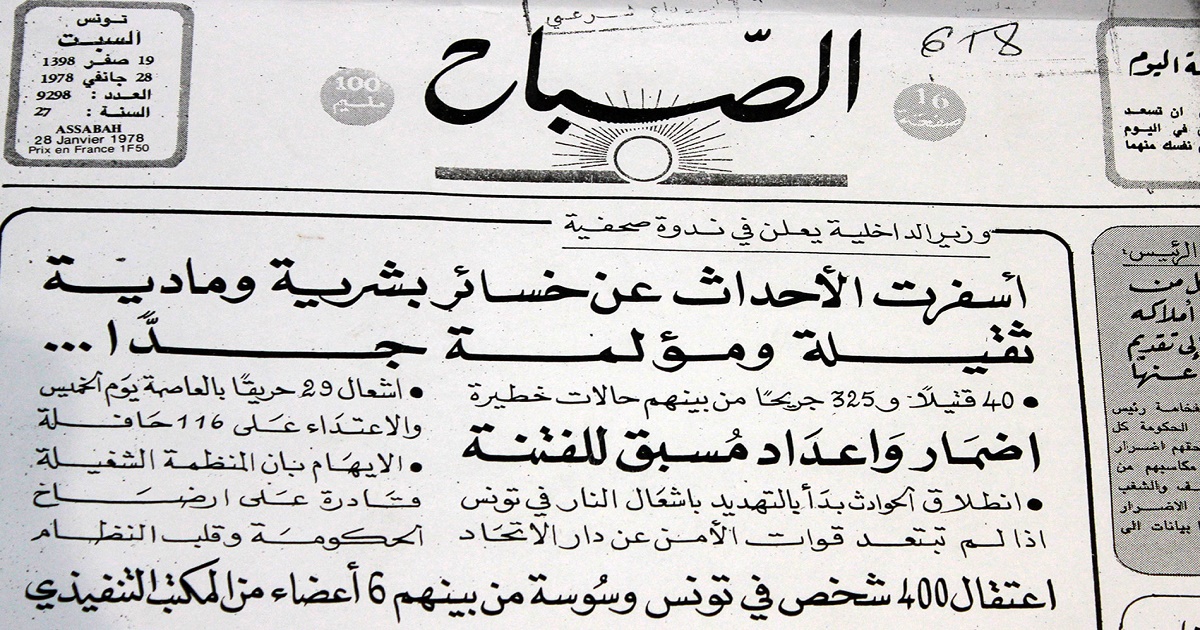 تونس
السبت
19 صفر 1398
28 جانفي 1978
العدد : 9298
السنة : 27
ASSABAH
28 Janvier 1978
Prix en France 1F50
100
مليم
الصّباح
6T8
16
صفحة
اليوم
ان تسعد
في اليوم
نفسك منهما
وزير الداخلية يعلن في ندوة صحفية
أسفرت الأحداث عن خسائر بشرية ومادية
ثقيلة ومؤلمة جدًّا ...
• 40 قتيلاً و 325 جريحًا من بينهم حالات خطيرة
اضمار وَاعدَاد مُسبق للفتنة
• انطلاق الحوادث بدَأ بالتهديد باشعَال النار في تونس
اذا لم تبتعد قوات الأمن عن دار الاتحَاد
• اشعال 29 حريقًا بالعاصمة يَوم الخميس
والاعتداء عَلى 116 حَافلة
• الايهَام بَان المنظمة الشغيلة
قَادرة عَلى ارضَاخ
الحكومَة وقلب النظام
اعتقال 400 شخص في تونس وسُوسة من بينهم 6 أعضاء من المكتب التنفيذي
الرئيس:
من
أملاكه
تقديم
عنها
رئيس
الحكومة كل
اضرار
مكاسبهم من
والشغب
الاضرار
بيانات الى